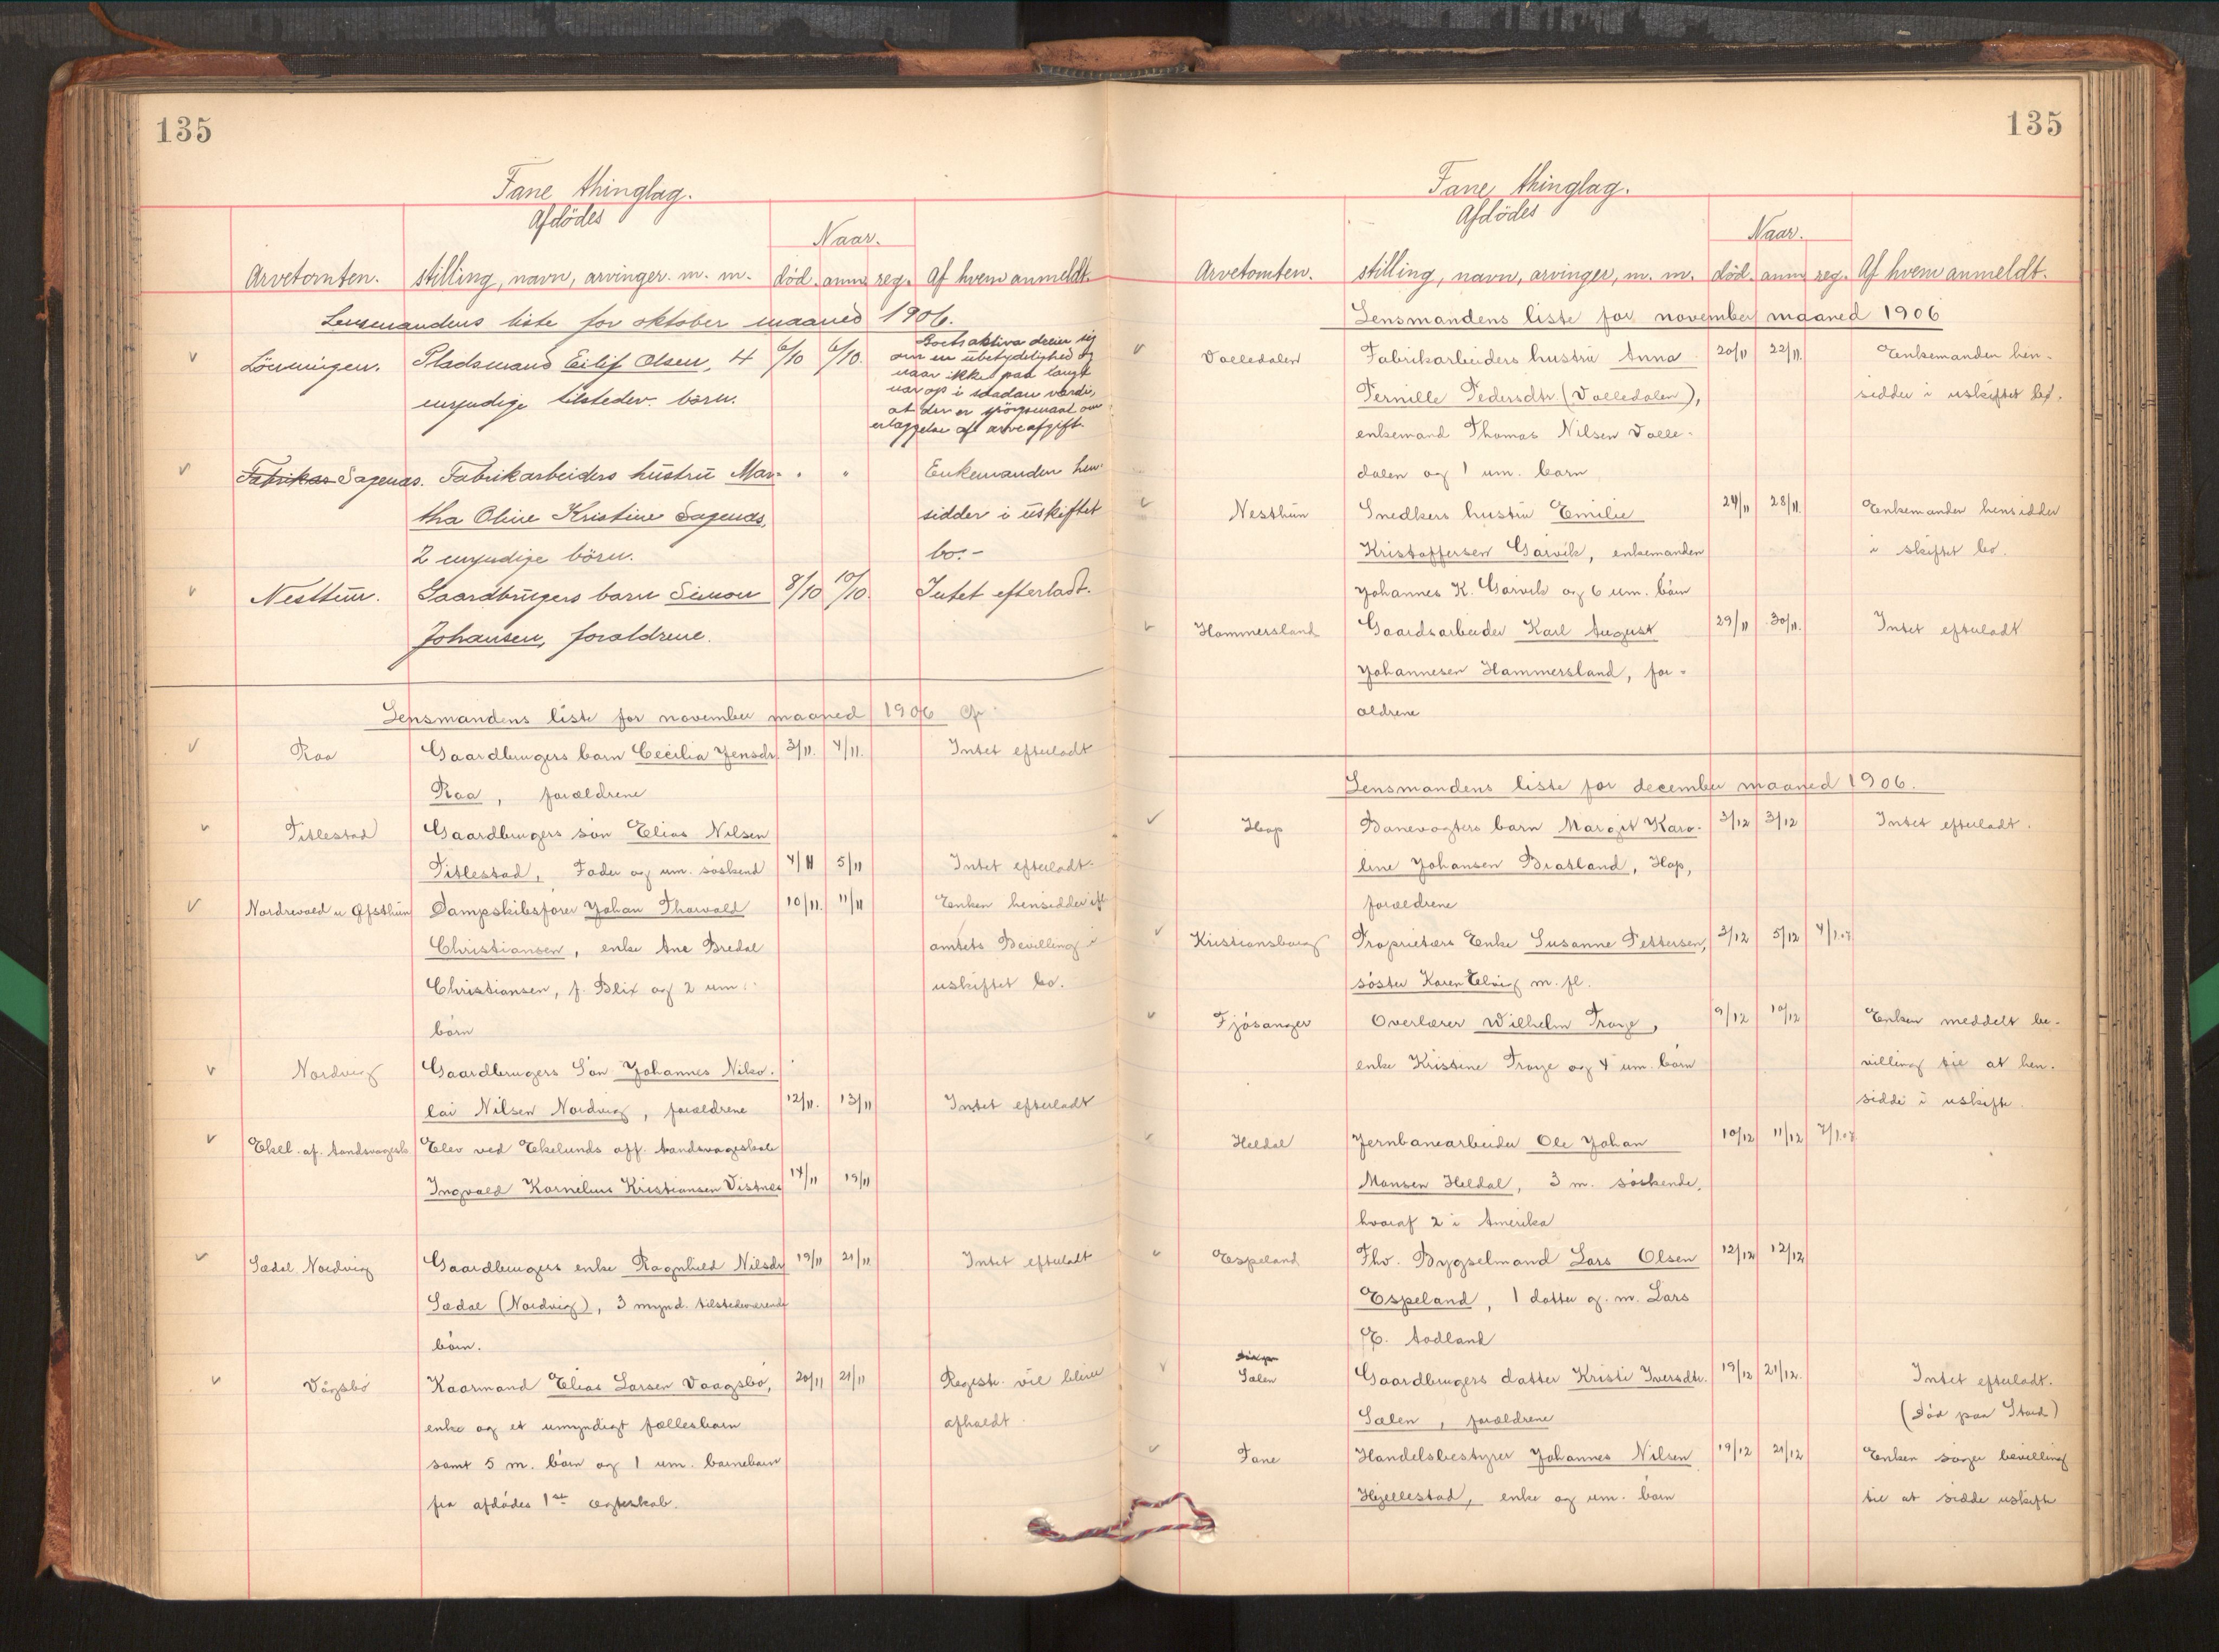 135
Fane thinglag.
Afdödes
Naar.
Arvetomten. stilling, navn, arvinger. m. m. död. anm. reg. Af hvem anmeldt.
Lensmandens liste for oktober maaned 1906.
Lönningen. Pladsmand Eilif Olsen, 4 6/10 6/10. Boets aktiva dreier sig
om en übetydelighed og
naar ikke paa langt
nær op i saadan værdi,
at der er spörgsmaal om
erlæggelse af arveafgift.
umyndige tilstedev. börn.
Fabrikar Sagenæs. Fabrikarbeiders hüstrü Mar- " " Enkemanden hen-
tha Oline Kristine Sagenæs, sidder i üskiftet
2 umyndige börn. bo.-
Nesttün. Gaardbrügers barn Simon 8/10 10/10. Intet efterladt.
Johansen, forældrene.
Lensmandens liste for november maaned 1906
Raa Gaardbrugers barn Cecilia Jensdr 3/11. 4/11. Intet efterladt
Raa, forældrene
Titlestad Gaardbrugers sön Elias Nilsen
Titlestad, Fader og um. söskend 4/11 5/11 Intet efterladt.
Nordrevold u Øfsthün Dampskibsförer Johan Thorvald 10/11. 11/11 Enken hensidder ifl
Christiansen, enke Ane Bredal amtets Bevilling i
Christiansen, f. Blix og 2 um. uskiftet bo.
börn
Nordvig Gaardbrugers Sön Johannes Niko-
lai Nilsen Nordvig, forældrene 12/11. 13/11 Intet efterladt
Ekel. af. Aandsvagesk. Elev ved Ekelunds aff. Aandsvageskole
Ingvald Kornelius Kristiansen Vistnes 14/11 19/11
Sædal Nordvig Gaardbrugers enke Ragnhild Nilsdr 19/11 21/11 Intet efterladt
Sædal (Nordvig), 3 mynd. tilstedeværende
börn.
Vågsbö Kaarmand Elias Larsen Vaagsbö, 20/11 21/11 Registr. vil blive
enke og et umyndigt fællesbarn afholdt
samt 5 m. börn og 1 um. barnebarn
fra afdödes 1ste ægteskab.
135
Fane thinglag.
Afdödes
Naar.
Arvetomten. stilling, navn, arvinger, m. m. död. anm. reg. Af hvem anmeldt.
Lensmandens liste for november maaned 1906
Valledalen Fabrikarbeiders hustrü Anna 20/11 22/11. Enkemanden hen-
Pernille Pedersdtr. (Valledalen), sidder i uskiftet bo.
enkemand Thomas Nilsen Valle-
dalen og 1 um. barn
Nesthün Snedkers hustrü Emilie 24/11 28/11. Enkemanden hensidder
Kristoffersen Garvik, enkemanden i skiftet bo.
Johannes K. Garvik og 6 um. börn
Hammersland Gaardsarbeider Karl August 29/11 30/11. Intet efterladt
Johannesen Hammersland, for-
ældrene
Lensmandens liste for december maaned 1906.
Hop Banevogters barn Margit Karo- 3/12 3/12 Intet efterladt.
line Johansen Bratland, Hop,
forældrene
Kristiansborg Proprietærs Enke Susanne Pettersen, 3/12 5/12 4/1.07
söster Karen Elvig m. fl.
Fjösanger Overlærer Wilhelm Troye, 9/12 10/12 Enken meddelt be-
enke Kristine Troye og 4 um. börn villing til at hen-
sidde i uskifte.
Heldal Jernbanearbeider Ole Johan 10/12 11/12 7/1.07
Monsen Heldal, 3 m. söskende,
hvoraf 2 i Amerika
Espeland Fhv. Bygselmand Lars Olsen 12/12 12/12
Espeland, 1 datter g. m. Lars
E. Aadland
Sælen Gaardbrugers datter Kristi Iversdtr. 19/12 21/12. Intet efterladt.
Sælen, forældrene (död paa Stord)
Fane Handelsbestyrer Johannes Nilsen 19/12 21/12 Enken söger bevilling
Hjellestad, enke og um. börn til at sidde uskifte